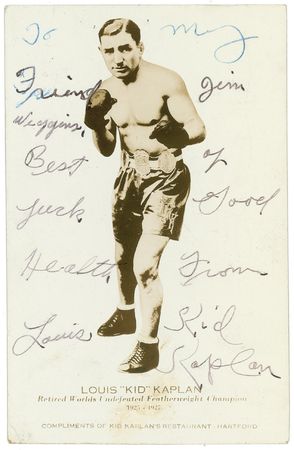 To My
Friend Jim
Wiggins,
Best of
Luck Good
Health, From
Louis Kid
Kaplan
LOUIS "KID" KAPLAN
Retired Worlds Undefeated Featherweight Champion
1925 - 1927
COMPLIMENTS OF KID KAPLAN'S RESTAURANT - HARTFORD